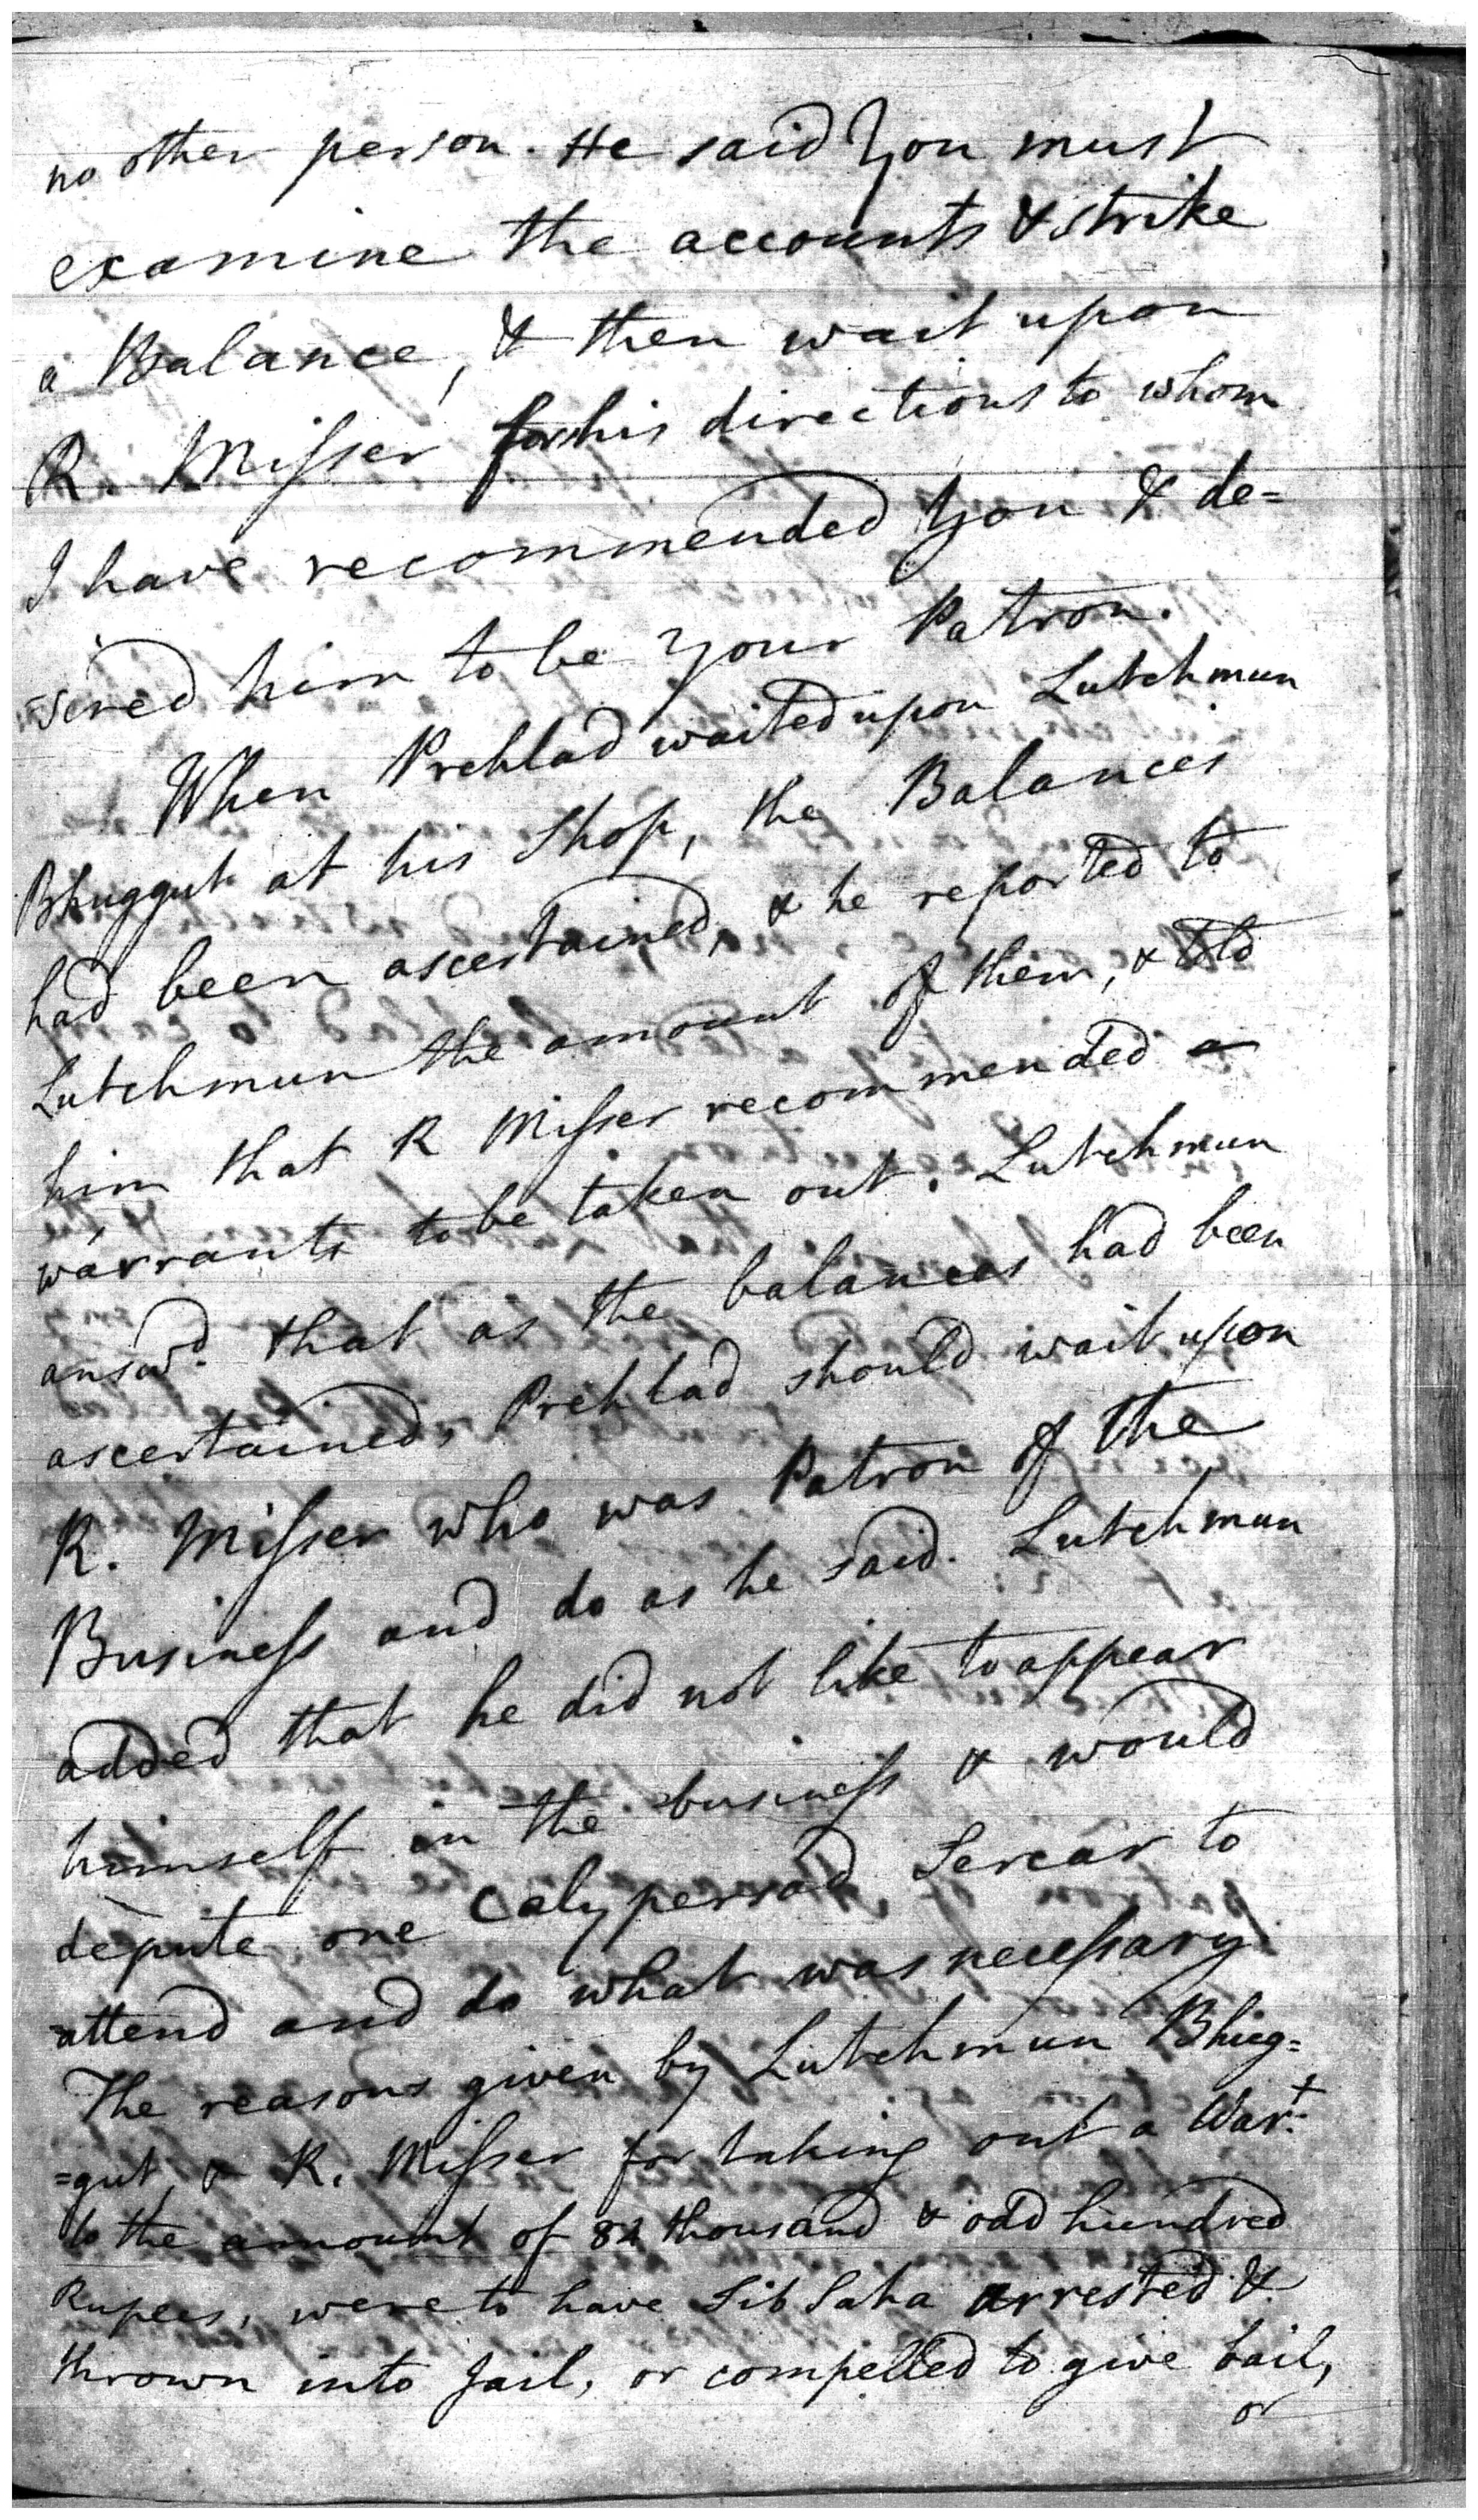 no other person. He said You must
examine the accounts & strike
a Balance, & then wait upon
R. Misser for his directions to whom
I have recommended You & de=
=sired him to be Your Patron.
When Prehlad waited upon Lutchmun
Bhuggut at his Shop, the Balances
had been ascertained, & he reported to
Lutchmun the amount of them, & told
him that R Misser recommended a
warrants to be taken out. Lutchmun
answd. that as the balances had been
ascertained, Prehlad should wait upon
R. Misser who was Patron of the
Business and do as he said. Lutchmun
added that he did not like to appear
himself in the business & would
depute one Calypersad Sercar to
attend and do what was necessary
The reasons given by Lutchmun Bhug=
=gut, & R. Misser for taking out a Wart.
to the amount of 82 thousand & odd hundred
Rupees, were to have Sib Saha arrested &
thrown into Jail, or compelled to give bail,
or